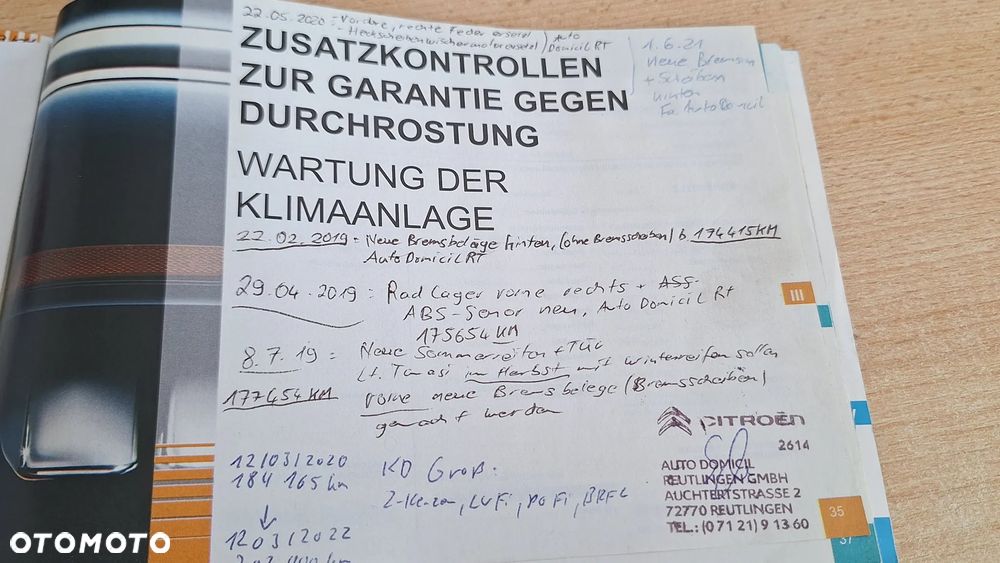 22.05.2020 = Vordre, rechte Feder ersetzt
- Heckscheibenwischermotor ersetzt
Auto
Domicil RT
1.6.21
neue Bremsen
+ Scheiben
hinten
Fa. Auto Domicil
ZUSATZKONTROLLEN
ZUR GARANTIE GEGEN
DURCHROSTUNG
WARTUNG DER
KLIMAANLAGE
22.02.2019 = Neue Bremsbeläge hinten, (ohne Bremsscheiben) b. 174415KM
Auto Domicil RT
29.04.2019 : Radlager vorne rechts + ASS-
ABS-Sensor neu, Auto Domicil RT
175654 KM
III
8.7.19 = Neue Sommerreifen + TÜV
177454 KM
Lt. Tomasi im Herbst mit Winterreifen sollen
vorne neue Bremsbelege (Bremsscheiben)
gemacht werden
CITROËN
2614
AUTO DOMICIL
REUTLINGEN GMBH
AUCHTERTSTRASSE 2
72770 REUTLINGEN
TEL.: (0 71 21) 9 13 60
12/03/2020
184 165 km
KD Groß:
Z-Kerzen, LUFi, POFi, BRFL
12 03/2022
35
37
OTOMOTO